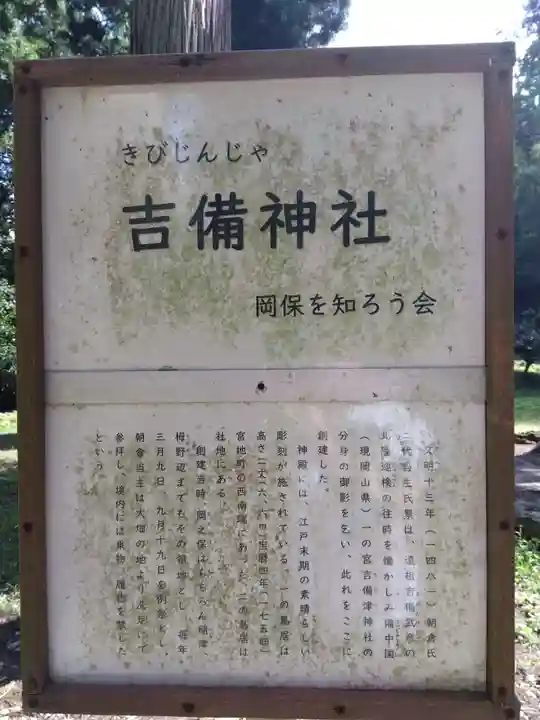 きびじんじゃ
吉備神社
岡保を知ろう会
文明十三年(一四八一)朝倉氏
二代 氏景は、遠祖吉備武彦の
北陸巡検の往時を懐かしみ備中国
(現岡山県)一の宮吉備津神社の
分身の御影を乞い、此れをここに
創建した。
神殿には、江戸末期の素晴らしい
彫刻が施されている。一の鳥居は
高さ二丈六、六 宝暦四年(一七五四)
宮地町の西南端にあった。二の鳥居は
社地にある。
創建当時、岡之保はもちろん稲津、
栂野辺までもその領域とし、毎年
三月九日、九月十九日を例祭とし、
朝倉当主は大畑の地より 足にて
参拝し、境内には乗物、履物を禁じた
という。